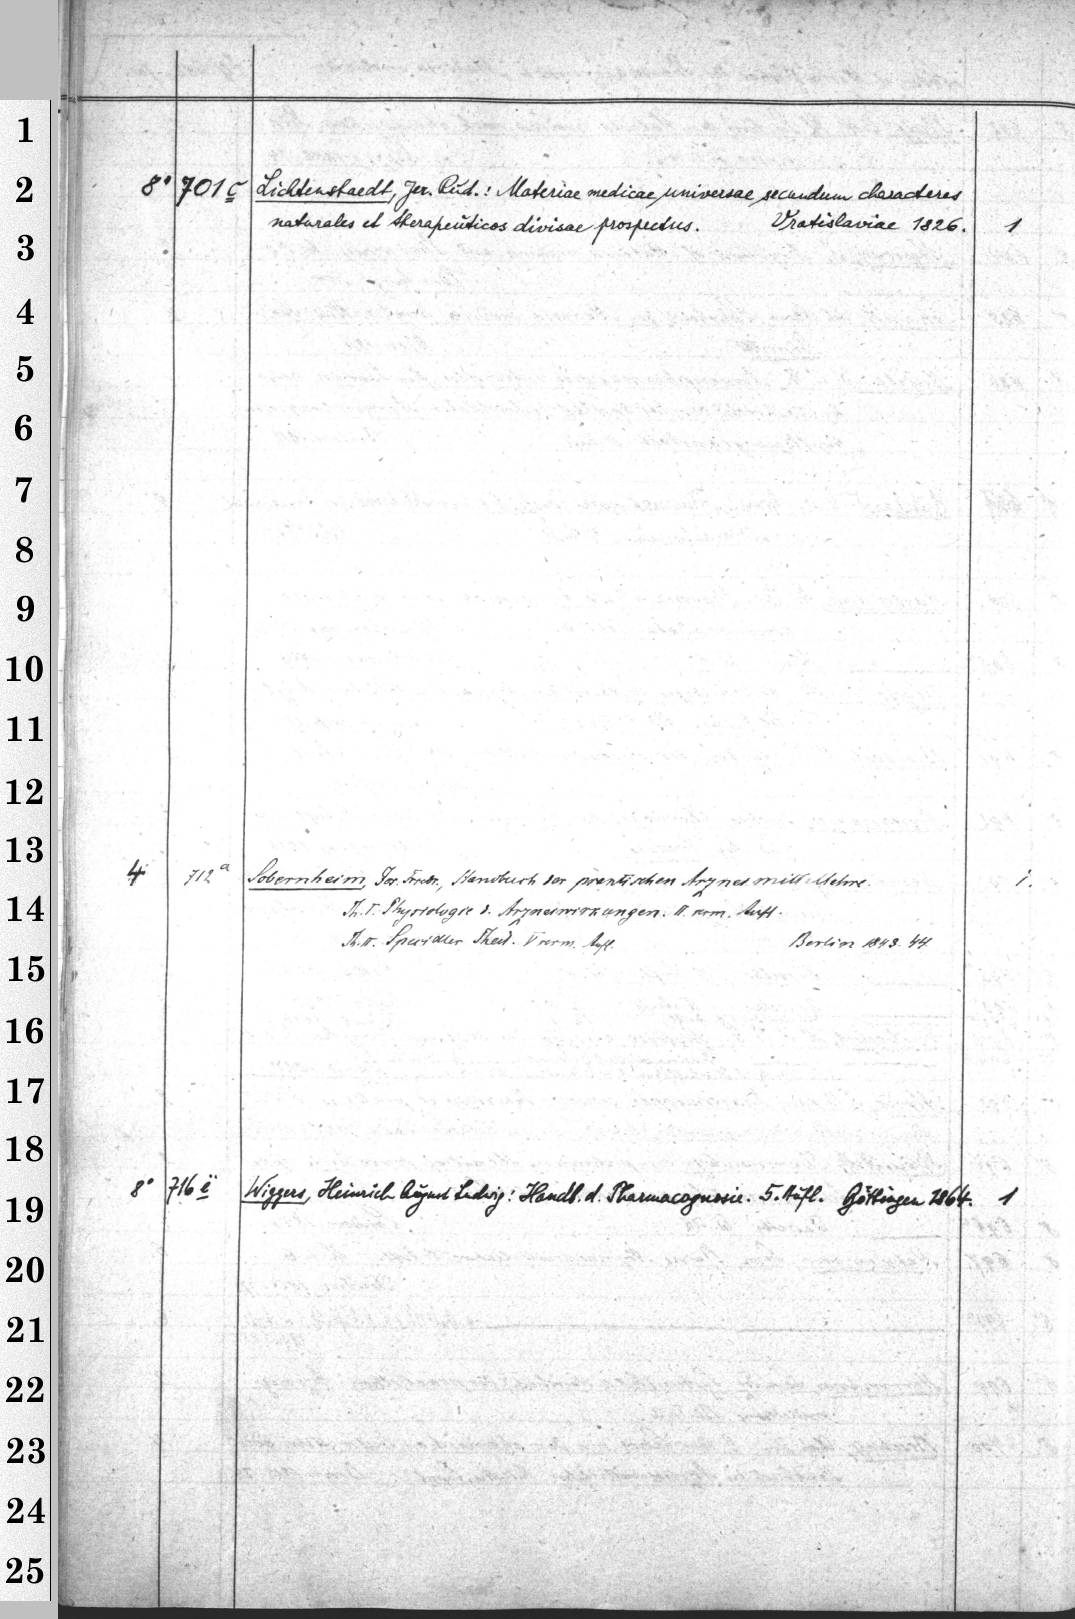 1
2
3
4
5
6
7
8
9
10
11
12
13
14
15
16
17
18
19
20
21
22
23
24
25
8° 701 c Lichtenstaedt, Jer. Rud.: Materiae medicae universae secundum characteres
naturales et therapeuticos divisae prospectus. Vratislaviae 1826. 1
4 712 a Sobernheim, Jos. Friedr., Handbuch der praktischen Arzneimittellehre. 1.
Th. I. Physiologie d. Arzneiwirkungen. verm. Aufl.
Th. II. Specieller Theil. verm. Aufl. Berlin 1843. 44
8° 716 Wiggers, Heinrich August Ludwig: Handb. d. Pharmacognosie. 5. Aufl. Göttingen 1864. 1